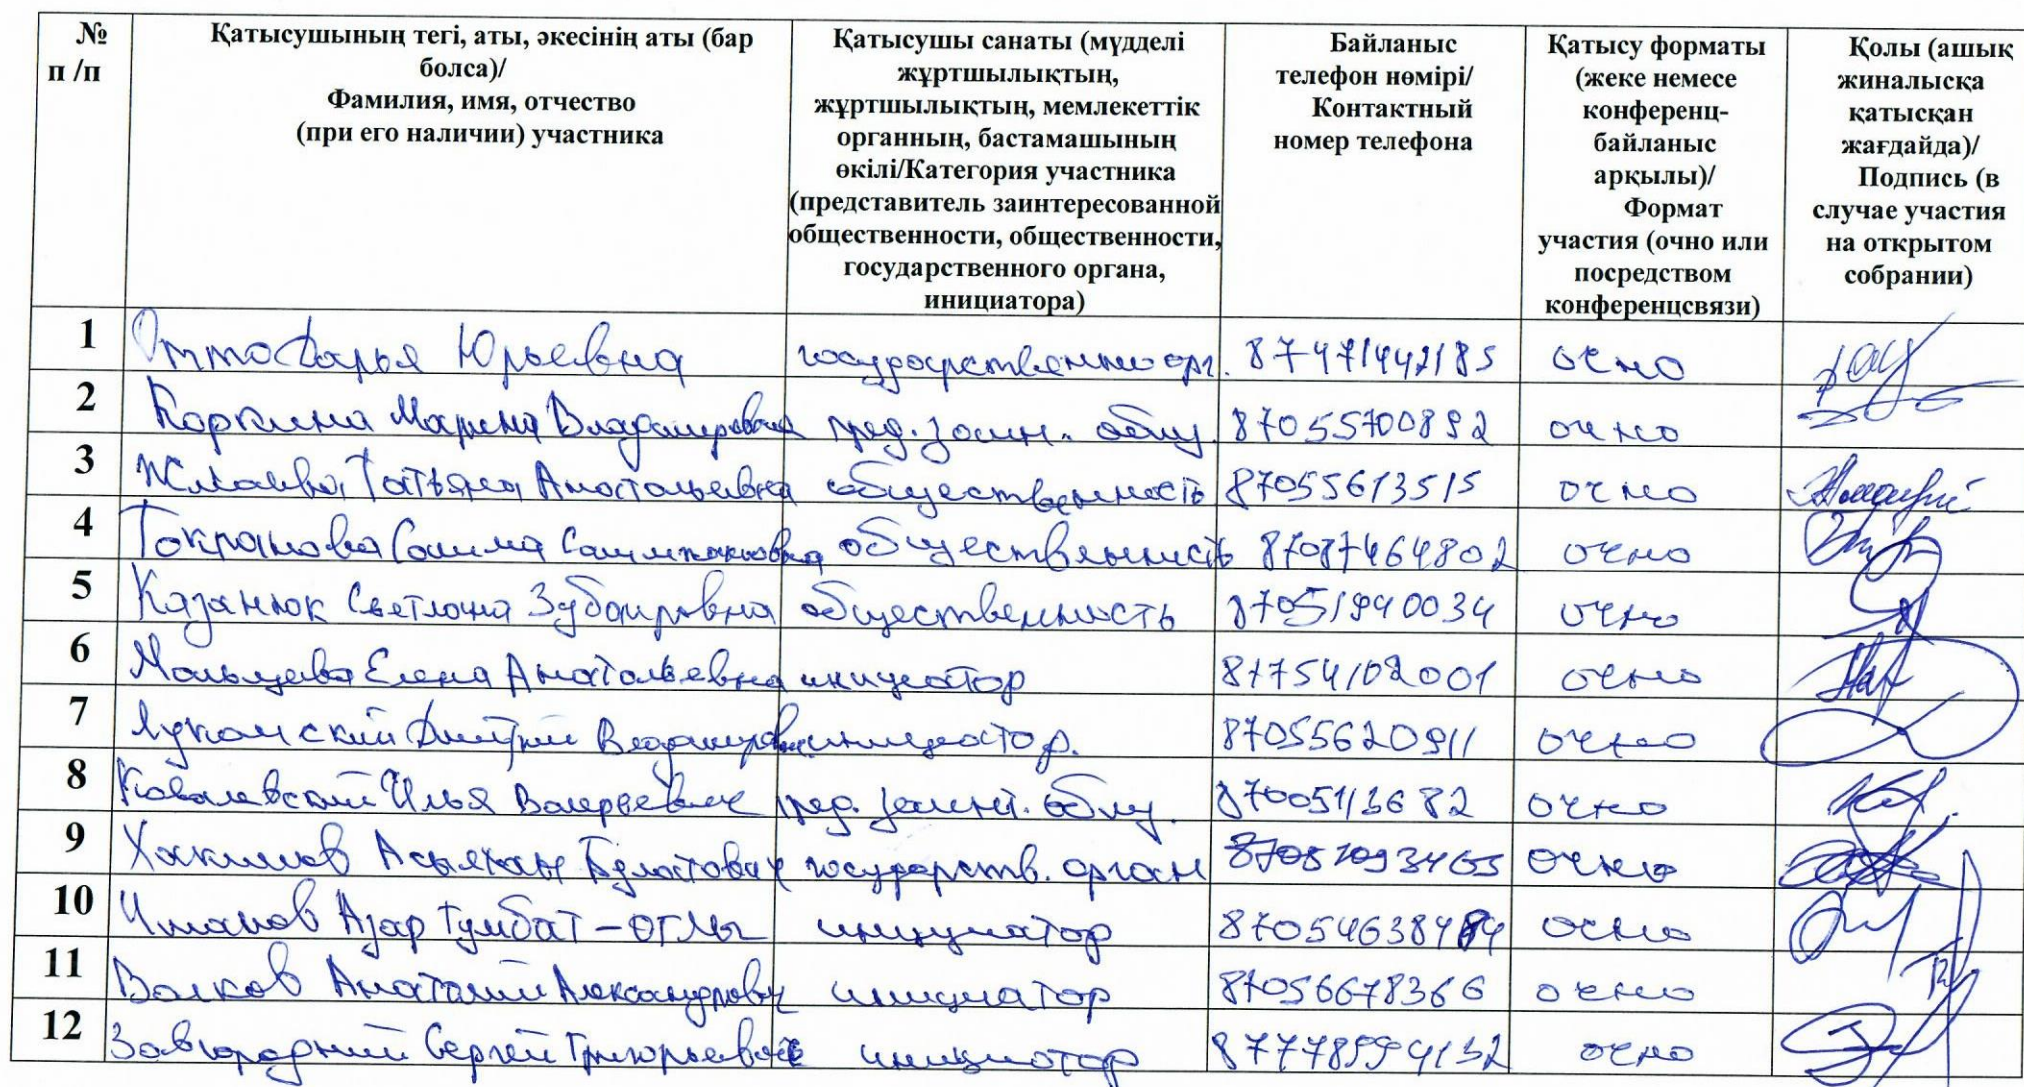 № п /п
Қатысушының тегі, аты, әкесінің аты (бар
болса)/
Фамилия, имя, отчество
(при его наличии) участника
Қатысушы санаты (мүдделі
жұртшылықтың,
жұртшылықтың, мемлекеттік
органның, бастамашының
өкілі/Категория участника
(представитель заинтересованной
общественности, общественности,
государственного органа,
инициатора)
Байланыс
телефон нөмірі/
Контактный
номер телефона
Қатысу форматы
(жеке немесе
конференц-
байланыс
арқылы)/
Формат
участия (очно или
посредством
конференцсвязи)
Қолы (ашық
жиналысқа
қатысқан
жағдайда)/
Подпись (в
случае участия
на открытом
собрании)
1 Отто Дарья Юрьевна государственно орг. 87471442185 очно
2 Коркина Марина Владимировна пред. заин. общ. 87055700892 очно
3 Татьяна Анатольевна общественность 87055613515 очно
4 Токранова Салима общественность 87087464802 очно
5 Казанюк Светлана Зубаировна общественность 87051940034 очно
6 Мальцева Елена Анатольевна инициатор 87754102001 очно
7 Дмитрий Владимирович инициатор. 87055620911 очно
8 Ковалевский Илья Валерьевич пред. заинт. общ. 87005113682 очно
9 Хакимов Асылхан Булатович государств. орган очно
10 Иманов Азар Гумбат-оглы инициатор очно
11 Волков Анатолий Александрович инициатор 87056678366 очно
12 Завгородний Сергей Григорьевич инициатор 87778594132 очно